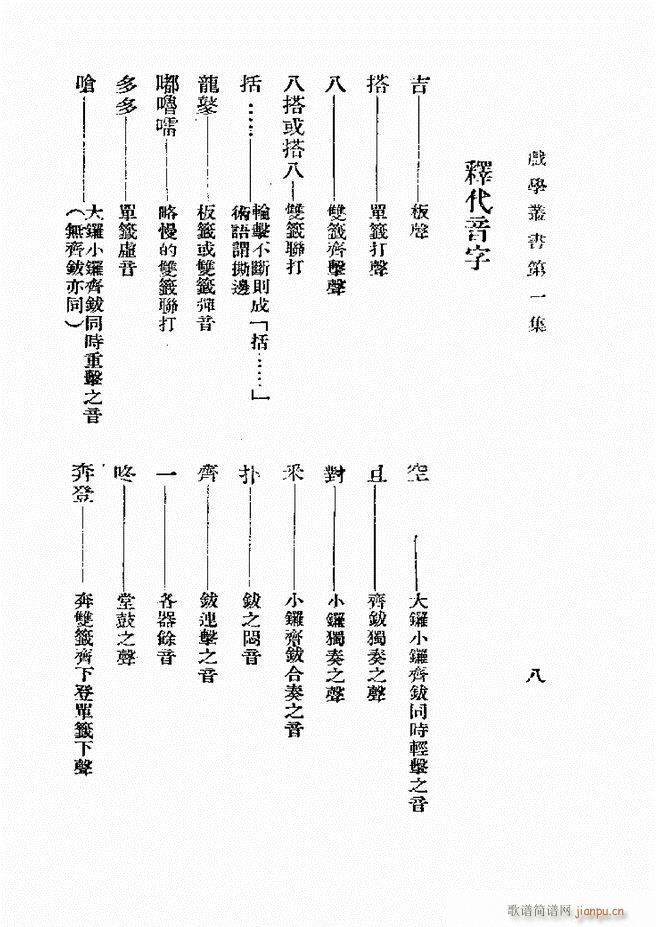 戲學叢書第一集
八
釋代音字
吉——板聲
搭——單籤打聲
八——雙籤齊擊聲
八搭或搭八——雙籤聯打
括……——輪擊不斷則成「括……」術語謂撕邊
龍鼕——板籤或雙籤彈音
嘟嚕嚅——略慢的雙籤聯打
多多——單籤虛音
嗆——大鑼小鑼齊鈸同時重擊之音（無齊鈸亦同）
空——大鑼小鑼齊鈸同時輕擊之音
且——齊鈸獨奏之聲
對——小鑼獨奏之聲
釆——小鑼齊鈸合奏之音
扑——鈸之悶音
齊——鈸連擊之音
一——各器餘音
咚——堂鼓之聲
奔登——奔雙籤齊下登單籤下聲
歌谱简谱网 jianpu.cn